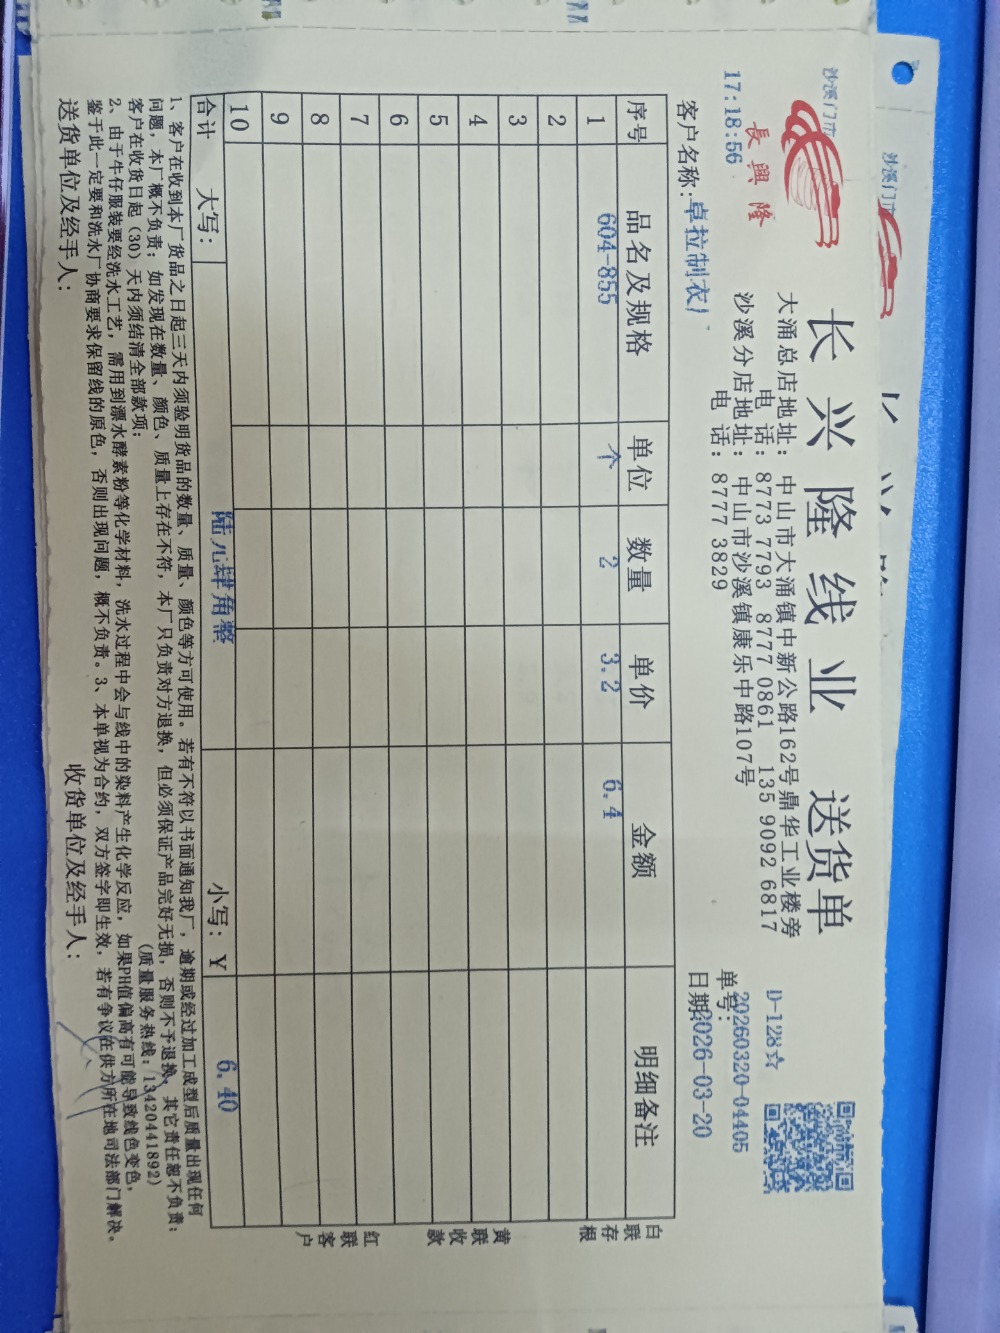 沙溪门市
沙溪门市
長興隆
17:18:56
长兴隆线业 送货单
大涌总店地址：中山市大涌镇中新公路162号鼎华工业楼旁
电话：8773 7793 8777 0861 135 9092 6817
沙溪分店地址：中山市沙溪镇康乐中路107号
电话：8777 3829
D-128☆
单号：20260320-04405
日期：2026-03-20
客户名称：卓拉制衣厂
序号 品名及规格 单位 数量 单价 金额 明细备注
1 604-855 个 2 3.2 6.4
2
3
4
5
6
7
8
9
10
合计 大写： 陆元肆角整 小写：￥ 6.40
白联存根
黄联收款
红联客户
1、客户在收到本厂货品之日起三天内须验明货品的数量、质量、颜色等方可使用。若有不符以书面通知我厂，逾期或经过加工成型后质量出现任何
问题，本厂概不负责；如发现在数量、颜色、质量上存在不符，本厂只负责对方退换，但必须保证产品完好无损，否则不予退换，其它责任恕不负责；
客户在收货日起（30）天内须结清全部款项； （质量服务热线：13420441892）
2、由于牛仔服装要经洗水工艺，需用到漂水酵素粉等化学材料，洗水过程中会与线中的染料产生化学反应，如果PH值偏高有可能导致线色变色，
鉴于此一定要和洗水厂协商要求保留线的原色，否则出现问题，概不负责。3、本单视为合约，双方签字即生效，若有争议在供方所在地司法部门解决。
送货单位及经手人： 收货单位及经手人：